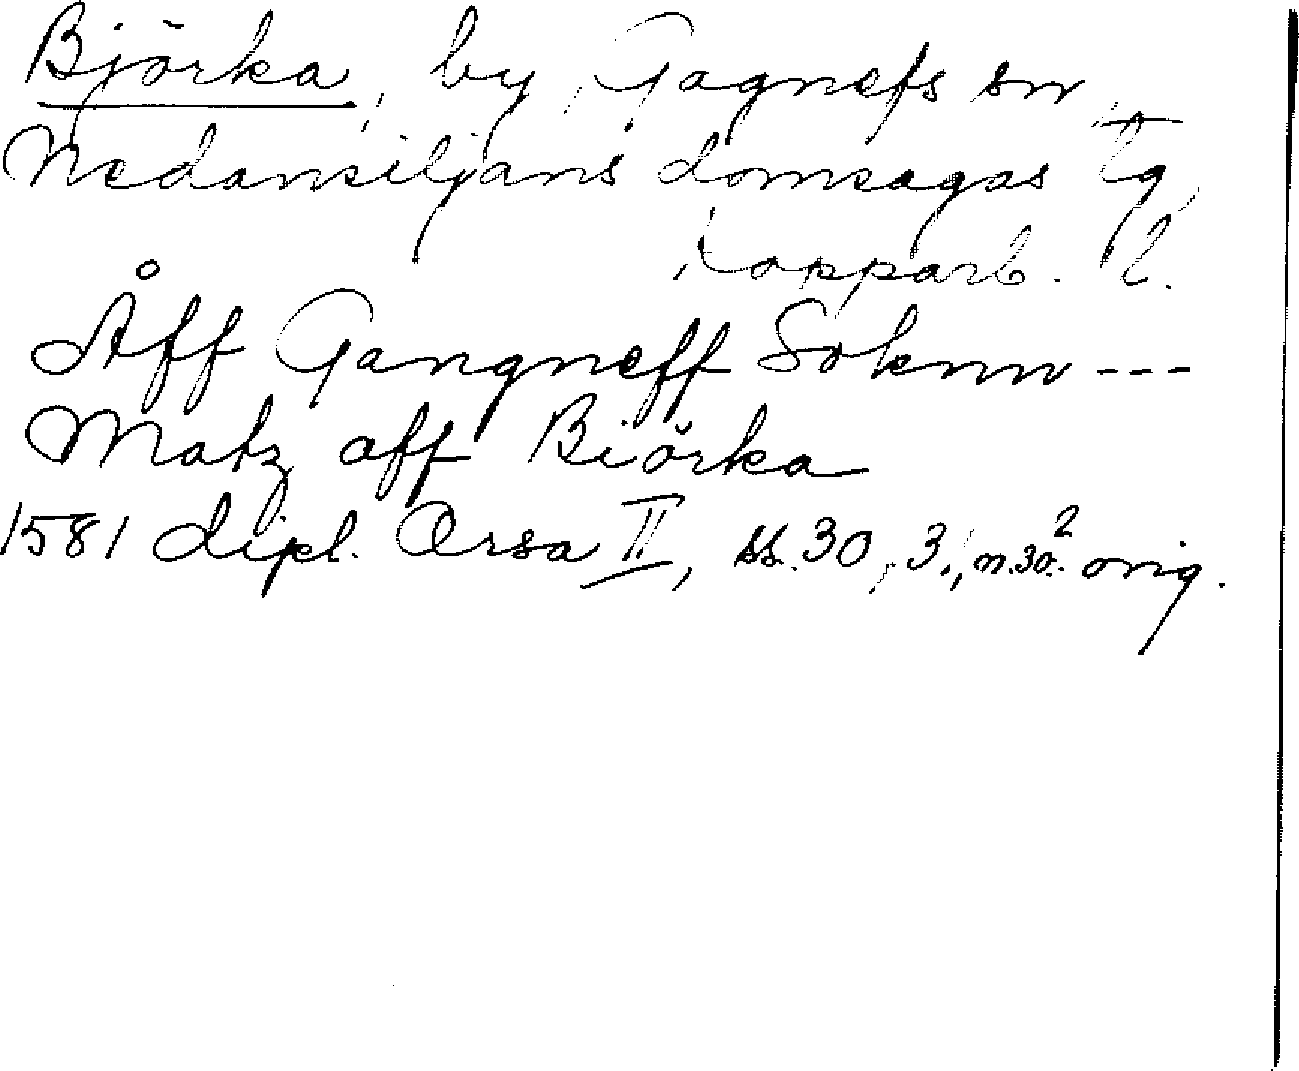 Björka, by, Gagnefs sn,
Nedansiljans domsagas tg,
Kopparb. l.
Åff Gangneff Soknn ---
Matz aff Biörka
1581 dipl. Orsa II, ss. 30, 3., n. 30.² orig.